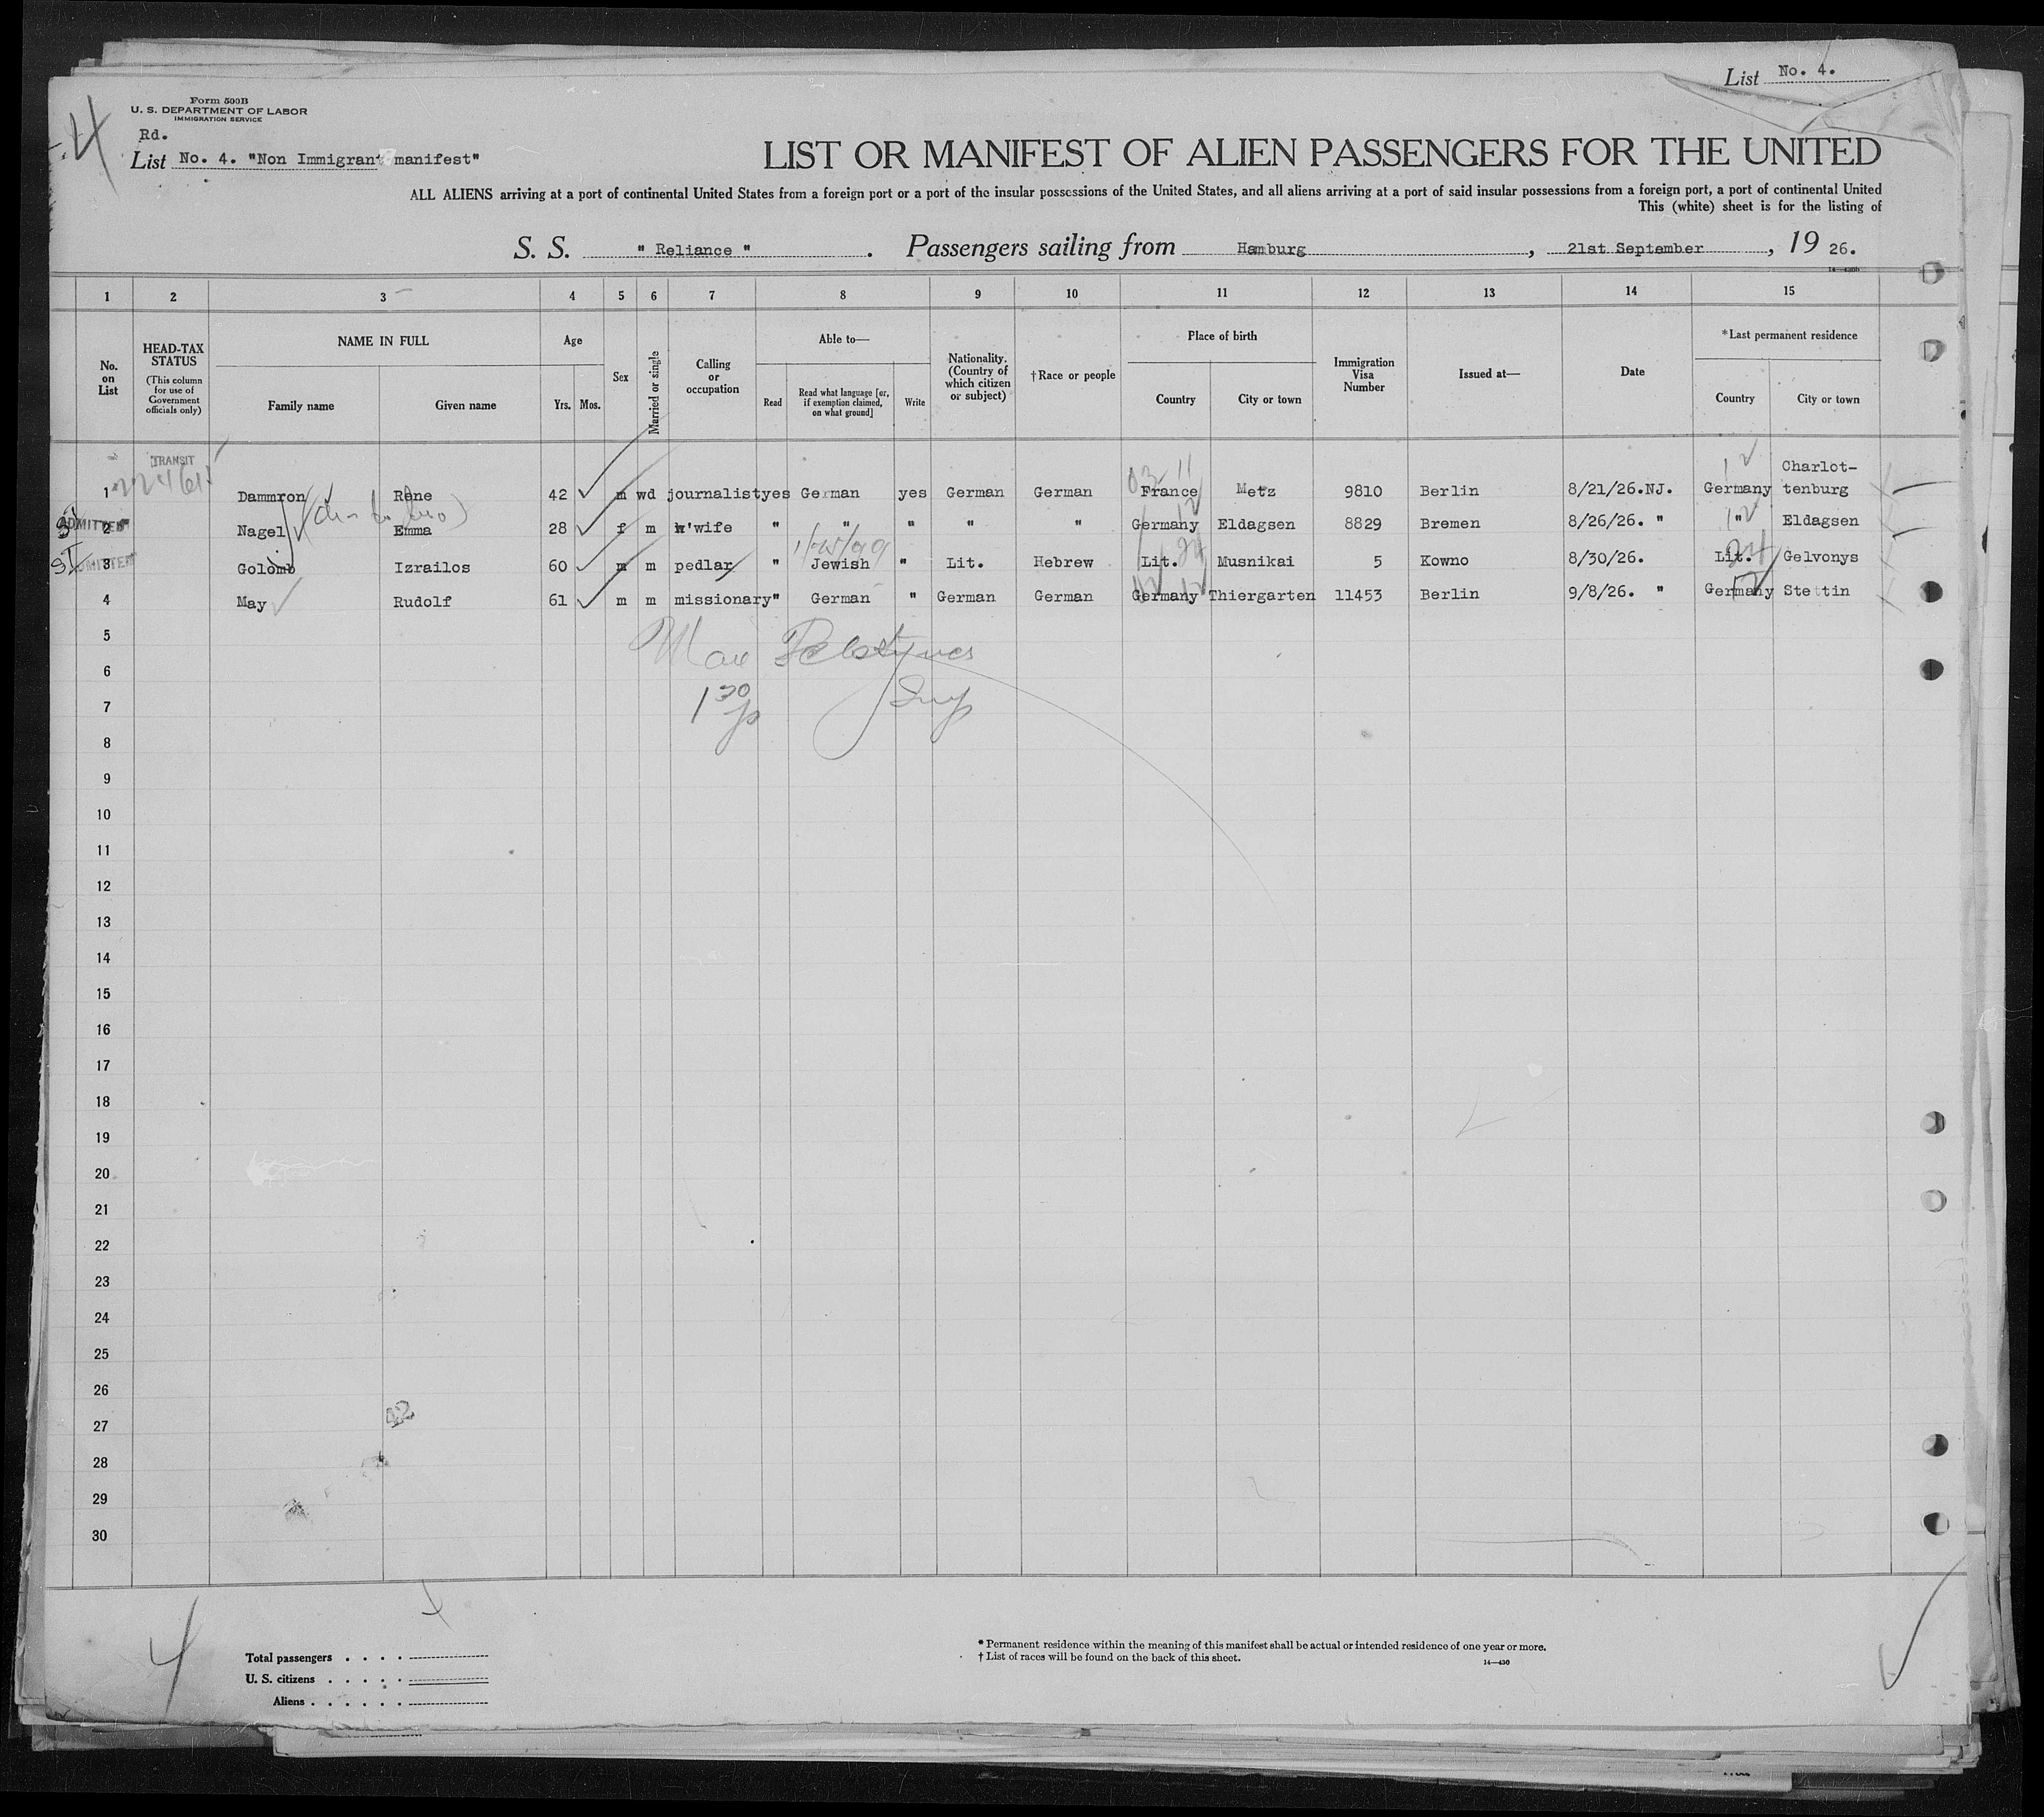 List No. 4.
Form 500B
U. S. DEPARTMENT OF LABOR
IMMIGRATION SERVICE
4
Rd.
List No. 4. "Non Immigrant manifest"
LIST OR MANIFEST OF ALIEN PASSENGERS FOR THE UNITED
ALL ALIENS arriving at a port of continental United States from a foreign port or a port of the insular possessions of the United States, and all aliens arriving at a port of said insular possessions from a foreign port, a port of continental United
This (white) sheet is for the listing of
S. S. " Reliance " . Passengers sailing from Hamburg , 21st September , 19 26.
1 2 3 4 5 6 7 8 9 10 11 12 13 14 15
No. on List
HEAD-TAX STATUS
(This column for use of Government officials only)
NAME IN FULL
Family name Given name
Age
Yrs. Mos.
Sex
Married or single
Calling or occupation
Able to—
Read
Read what language [or, if exemption claimed, on what ground]
Write
Nationality. (Country of which citizen or subject)
†Race or people
Place of birth
Country City or town
Immigration Visa Number
Issued at—
Date
*Last permanent residence
Country City or town
TRANSIT
1 Dammron Rene 42 m wd journalist yes German yes German German France Metz 9810 Berlin 8/21/26.NJ. Germany Charlot-
tenburg
ADMITTED
2 Nagel Emma 28 f m h'wife " " " " " Germany Eldagsen 8829 Bremen 8/26/26. " " Eldagsen
ADMITTED
3 Golomb Izrailos 60 m m pedlar " Jewish " Lit. Hebrew Lit. Musnikai 5 Kowno 8/30/26. Lit. Gelvonys
4 May Rudolf 61 m m missionary " German " German German Germany Thiergarten 11453 Berlin 9/8/26. " Germany Stettin
5
6
7
8
9
10
11
12
13
14
15
16
17
18
19
20
21
22
23
24
25
26
27
28
29
30
42
4
Total passengers . . . .
U. S. citizens . . . . .
Aliens . . . . . .
* Permanent residence within the meaning of this manifest shall be actual or intended residence of one year or more.
† List of races will be found on the back of this sheet.
14—430